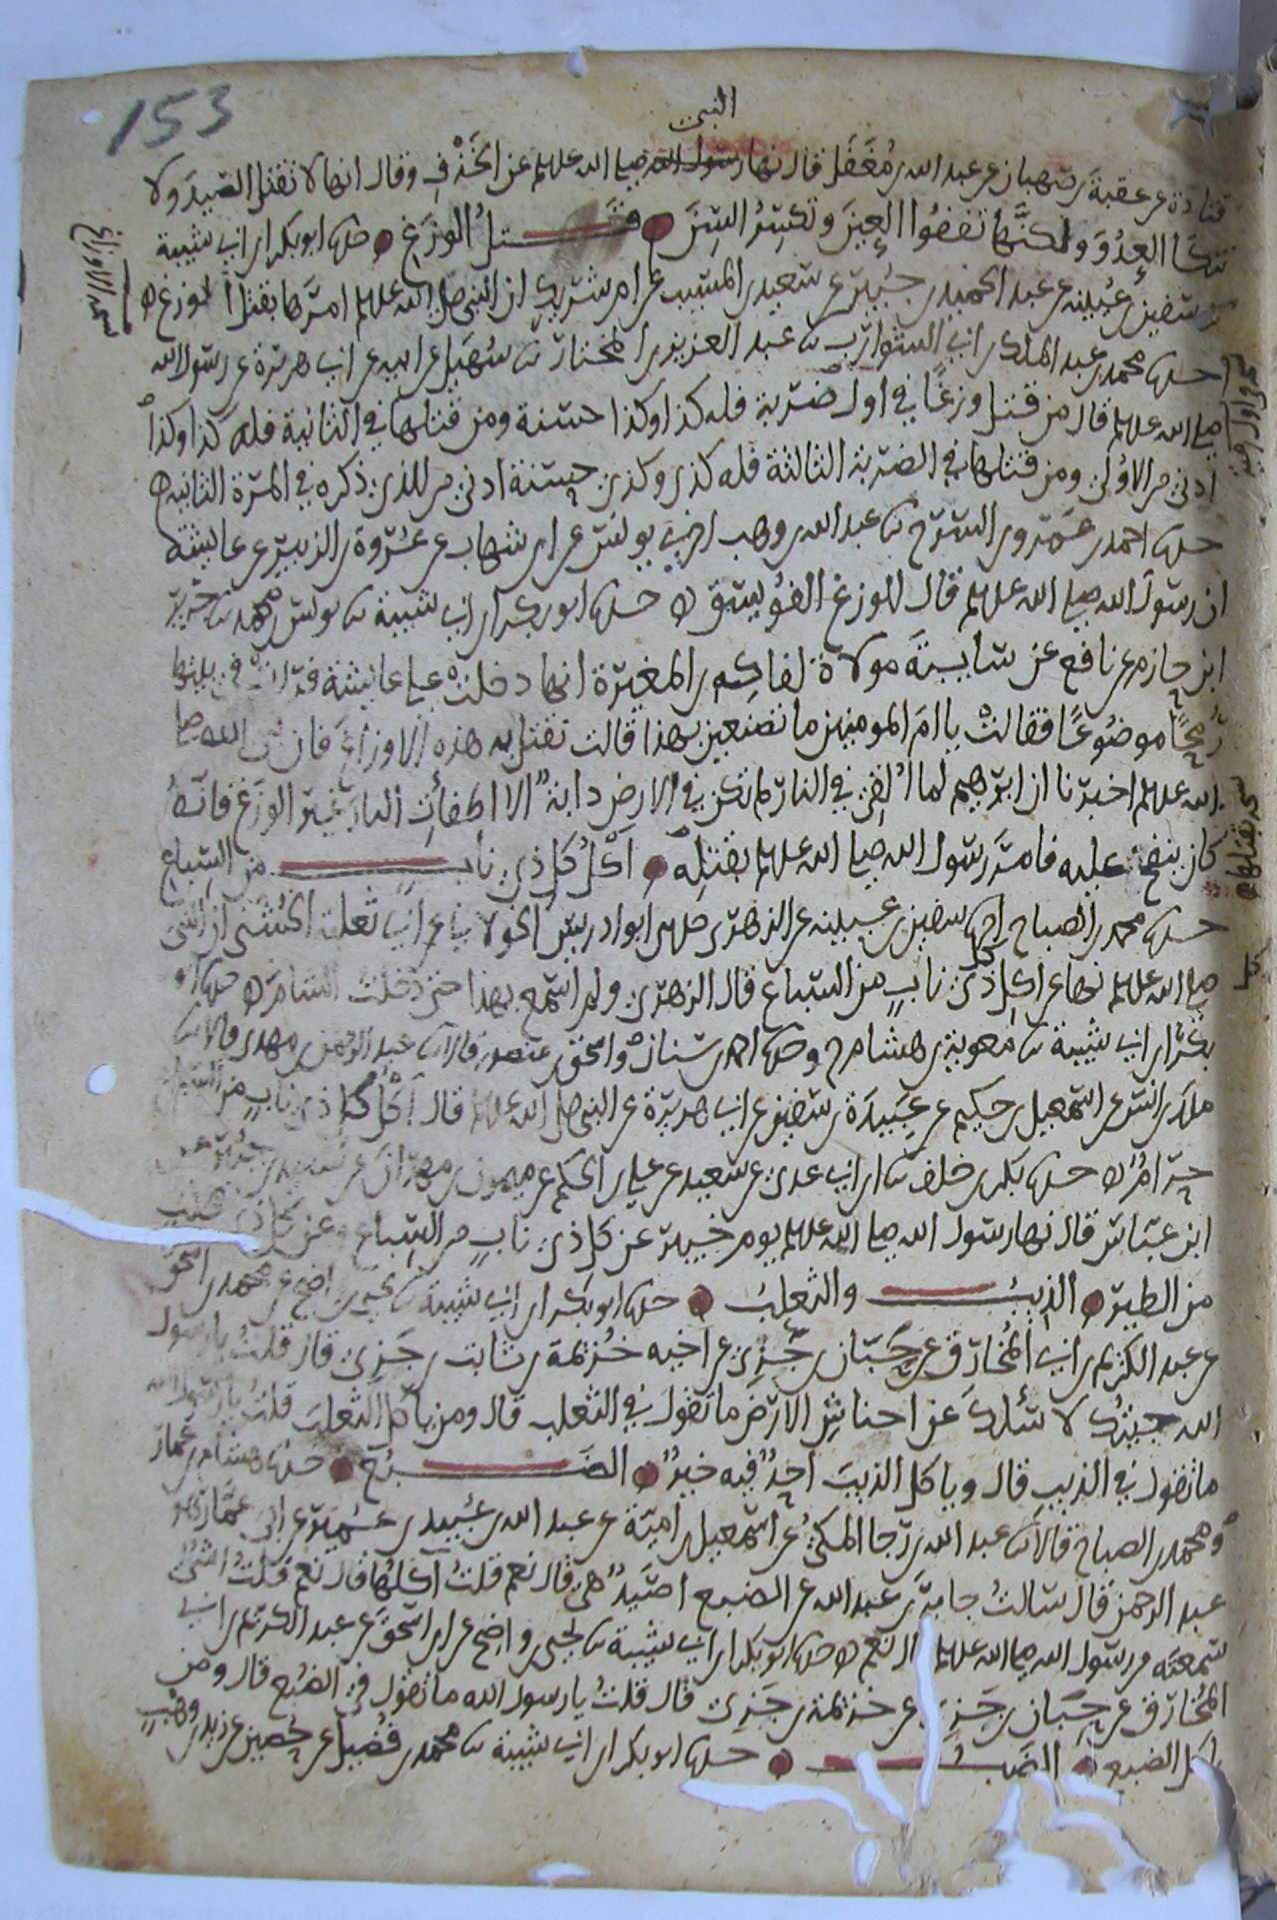 153
النبي
قتادة عن عقبة بن صهبان عن عبد الله بن مغفل قال نها رسول الله صلى الله عليه وسلم عن الخذف وقال انها لا تقتل الصيد ولا
تنكا العدو ولكنها تفقوا العين وتكسر السن قتل الوزغ حدثنا ابو بكر ابن ابي شيبة
سفين بن عيينه عن عبد الحميد بن جبير عن سعيد بن المسيب عن ام شريك ان النبي صلى الله عليه وسلم امرها بقتل الاوزغ
حدثنا محمد بن عبد الملك بن ابي الشوارب ثنا عبد العزيز بن المختار ثنا سهيل عن ابيه عن ابي هريرة عن رسول الله
صلى الله عليه وسلم قال من قتل وزغا في اول ضربة فله كذا وكذا حسنة ومن قتلها في الثانية فله كذا وكذا
ادنى من الاولى ومن قتلها في الضربة الثالثة فله كذى وكذى حسنة ادنى من الذي ذكره في المرة الثانيه
حدثنا احمد بن عمرو بن السرح ثنا عبد الله بن وهب اخبرني يونس عن ابن شهاب عن عروة بن الزبير عن عائشة
ان رسول الله صلى الله عليه وسلم قال للوزغ الفويسق حدثنا ابو بكر ابن ابي شيبة ثنا يونس بن محمد ثنا جرير
ابن حازم عن نافع عن سايبة مولاة لفاكه بن المغيرة انها دخلت على عائشة فرات في بيتها
رمحا موضوعا فقالت يا ام المومنين ما تصنعين بهذا قالت نقتل به هذه الاوزاغ فان نبي الله صلى
الله عليه وسلم اخبرنا ان ابرهيم لما القي في النار لم تكن في الارض دابة الا اطفات النار غير الوزغ فانه
كان ينفخ عليه فامر رسول الله صلى الله عليه وسلم بقتله اكل كل ذي ناب من السباع
حدثنا محمد بن الصباح انا سفين بن عيينه عن الزهري حدثني ابو ادريس الخولاني عن ابي ثعلبة الخشني ان النبي
صلى الله عليه وسلم نهى عن اكل كل ذي ناب من السباع قال الزهري ولم اسمع بهذا حتى دخلت الشام حدثنا ابو
بكر ابن ابي شيبة ثنا معوية بن هشام ح وحدثنا احمد بن سنان واسحق بن منصور قالا ثنا عبد الرحمن بن مهدي قالا ثنا
ملك بن انس عن اسمعيل بن حكيم عن عبيدة بن سفين عن ابي هريرة عن النبي صلى الله عليه وسلم قال اكل كل ذي ناب من السباع
حرام حدثنا بكر بن خلف ثنا ابن ابي عدي عن سعيد عن علي بن الحكم عن ميمون بن مهران عن سعيد بن جبير عن
ابن عباس قال نها رسول الله صلى الله عليه وسلم يوم خيبر عن كل ذي ناب من السباع وعن كل ذي مخلب
من الطير الذيب والثعلب حدثنا ابو بكر ابن ابي شيبة ثنا يحيى بن واضح عن محمد بن اسحق
عن عبد الكريم بن ابي المخارق عن حبان بن جزي عن اخيه خزيمة بن ثابت بن جزي قال قلت يا رسول
الله جيتك لاسئلك عن احناش الارض ما تقول في الثعلب قال ومن ياكل الثعلب قلت يا رسول الله
ما تقول في الذيب قال وياكل الذيب احد فيه خير الضبع حدثنا هشام بن عمار
ومحمد بن الصباح قالا ثنا عبد الله بن رجا المكي عن اسمعيل بن امية عن عبد الله بن عبيد بن عمير عن ابن ابي عمار وهو
عبد الرحمن قال سالت جابر بن عبد الله عن الضبع اصيد هي قال نعم قلت آكلها قال نعم قلت اشي
سمعته من رسول الله صلى الله عليه وسلم قال نعم حدثنا ابو بكر ابن ابي شيبة ثنا يحيى بن واضح عن ابن اسحق عن عبد الكريم بن ابي
المخارق عن حبان بن جزي عن خزيمة بن جزي قال قلت يا رسول الله ما تقول في الضبع قال ومن
ياكل الضبع الضب حدثنا ابو بكر ابن ابي شيبة ثنا محمد بن فضيل عن حصين عن زيد بن وهب